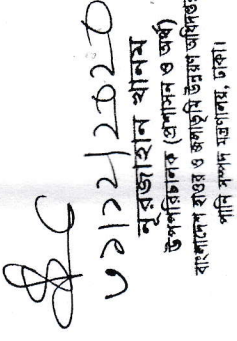 ৩১/১২/২০২০
নূরজাহান খানম
উপপরিচালক (প্রশাসন ও অর্থ)
বাংলাদেশ হাওর ও জলাভূমি উন্নয়ন অধিদপ্তর
পানি সম্পদ মন্ত্রণালয়, ঢাকা।